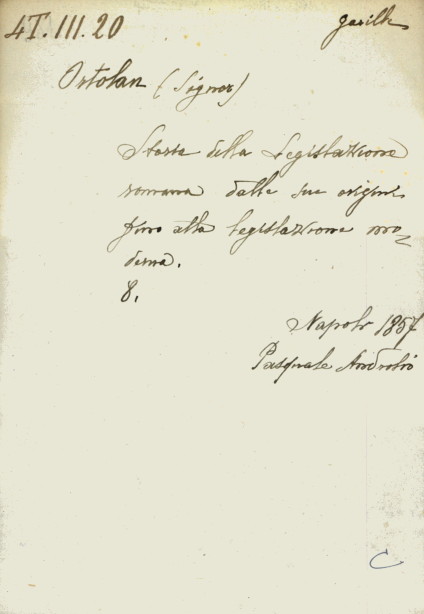 4T.III.20
Ortolan (Signor)
Storia della Legislazione
romana dalle sue origini
fino alla legislazione mo=
derna.
8.
Napoli 1857
Pasquale
C